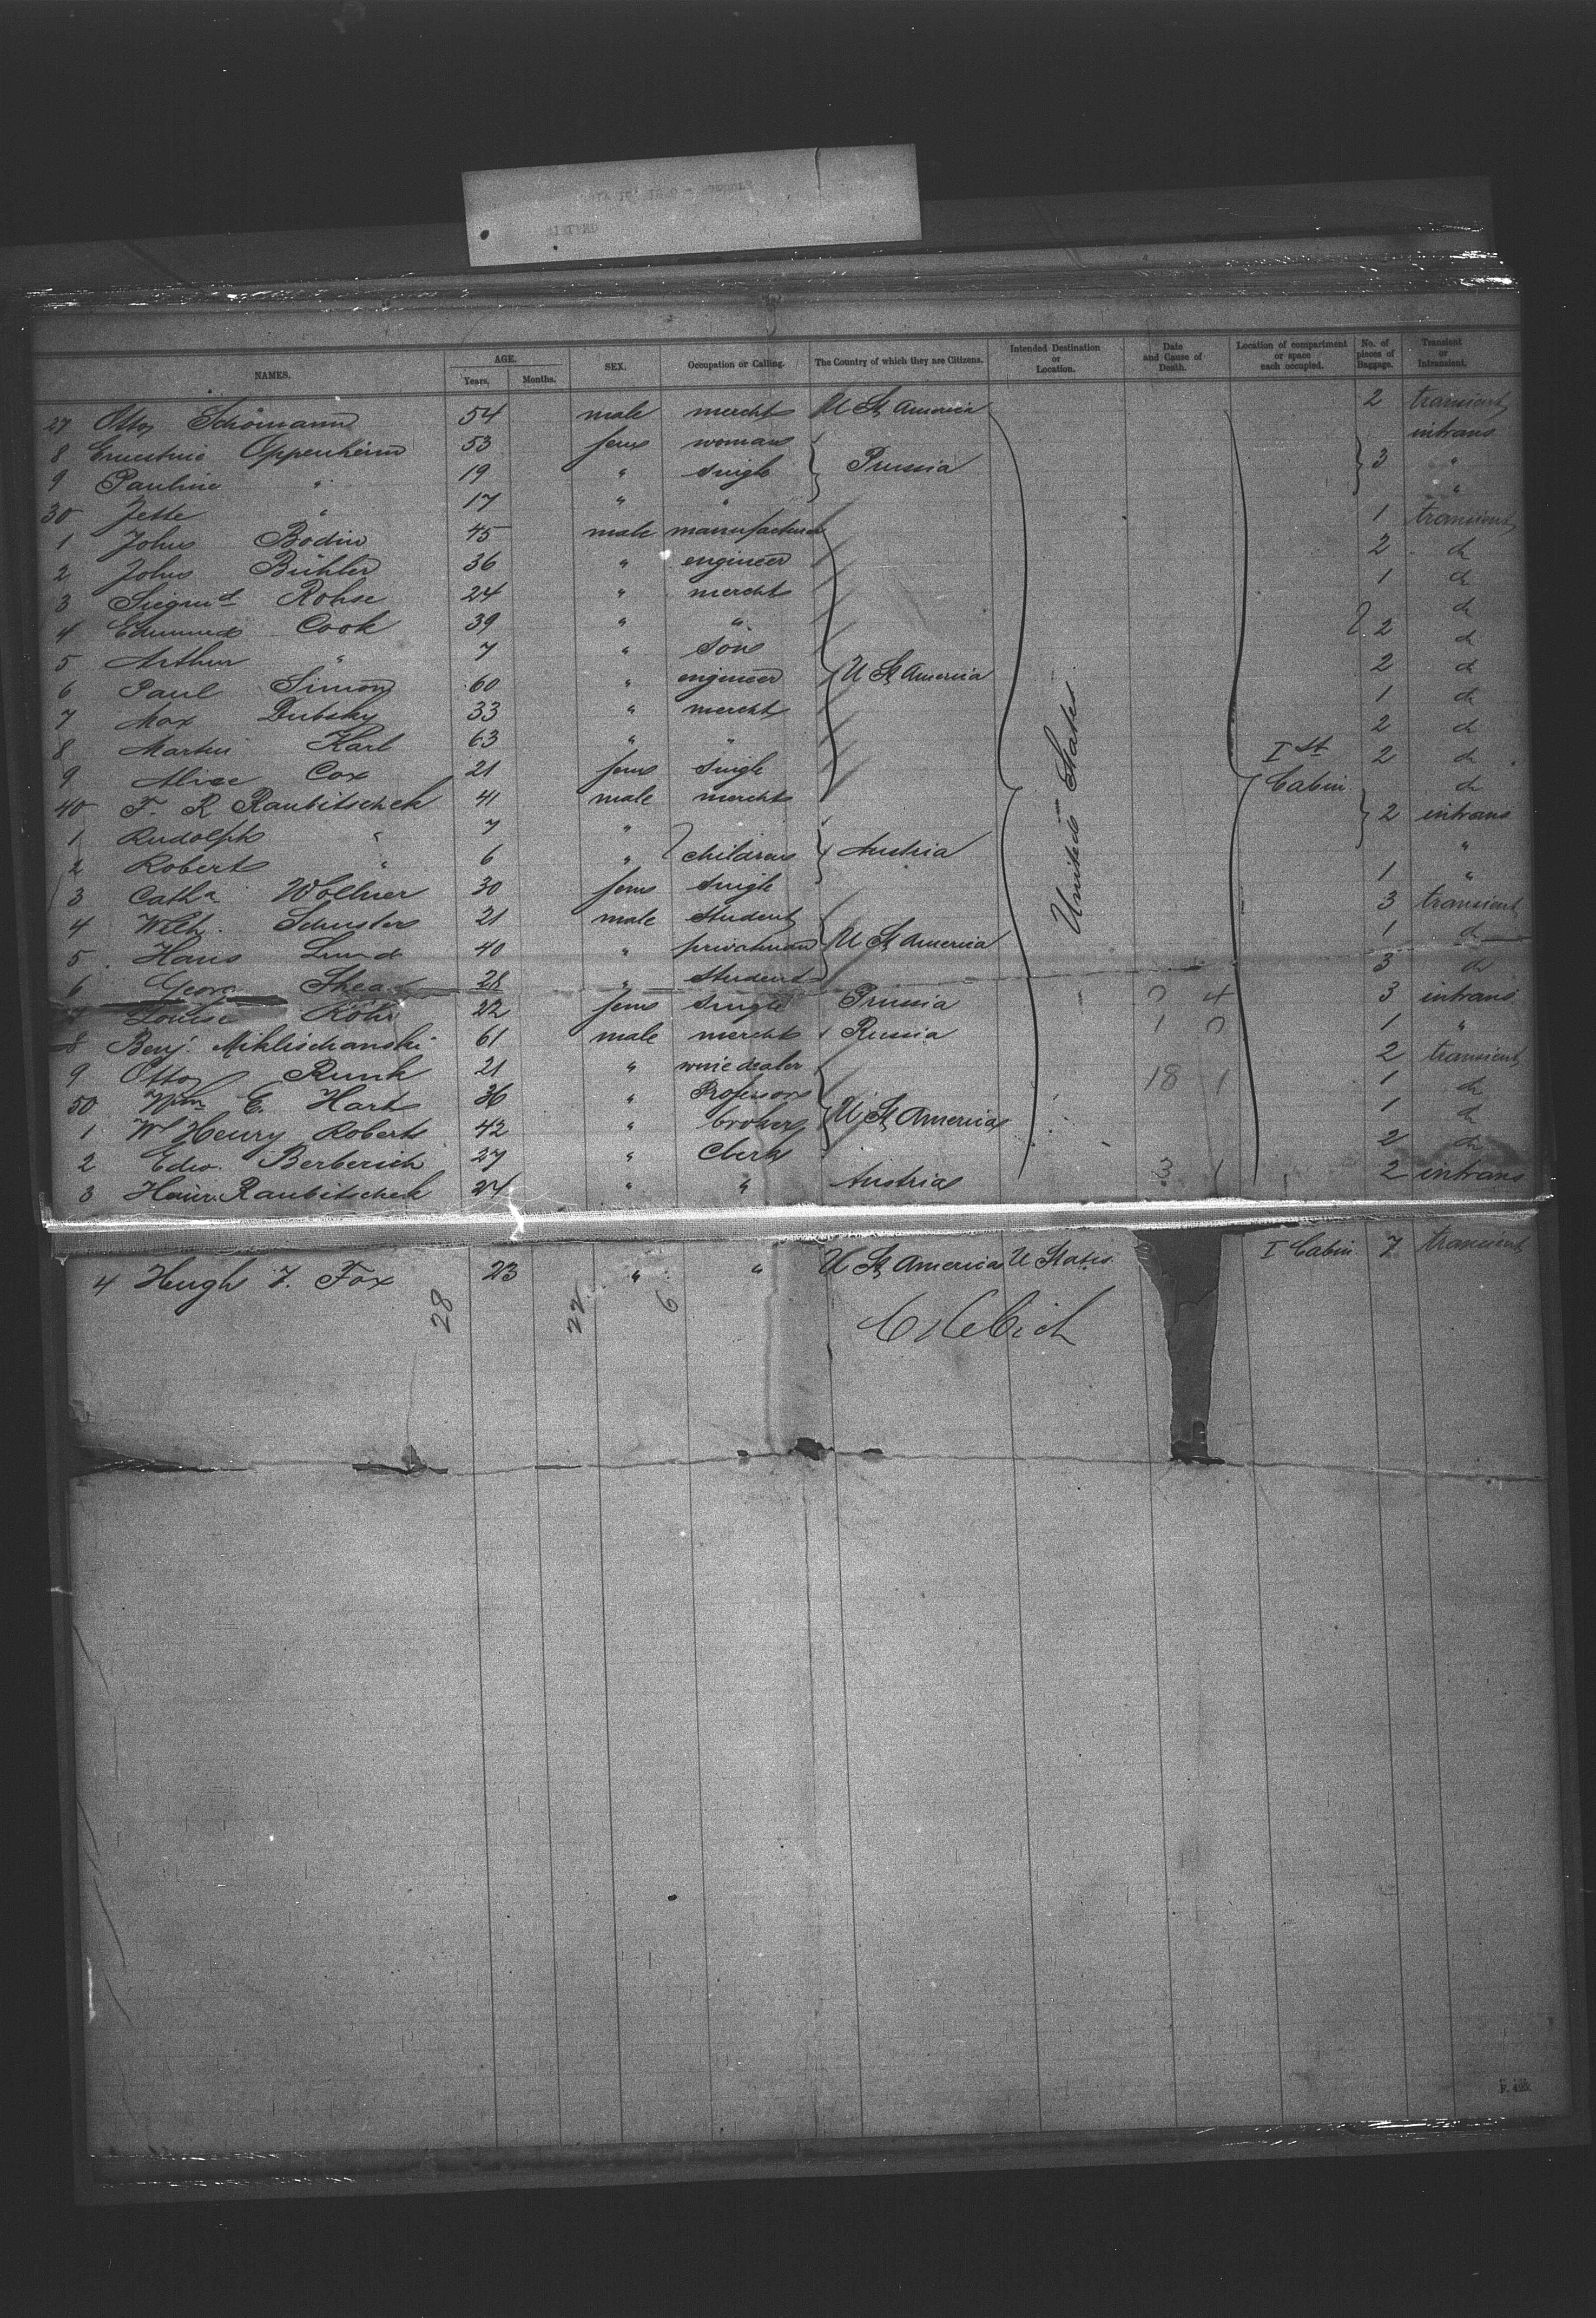 NAMES. AGE. Years. Months. SEX. Occupation or Calling. The Country of which they are Citizens. Intended Destination or Location. Date and Cause of Death. Location of compartment or space each occupied. No. of pieces of Baggage. Transient or Intransient.
27 Otto Schömann 54 male mercht U St America 2 transient
8 Ernestine Oppenheim 53 fem woman intrans
9 Pauline " 19 " single Prussia 3 "
30 Jette " 17 " " "
1 John Bodin 45 male manufacturer 1 transient
2 John Bühler 36 " engineer 2 do
3 Siegmd Rohse 24 " mercht 1 do
4 Edmund Cook 39 " " do
5 Arthur " 7 " son 2 do
6 Paul Simon 60 " engineer U St America 2 do
7 Max Dubsky 33 " mercht 1 do
8 Martin Karl 63 " " 2 do
9 Alice Cox 21 fem single United States Ist Cabin 2 do
40 F. R Raubitschek 41 male mercht do
1 Rudolph " 7 " 2 intrans
2 Robert " 6 " children Austria "
3 Catha Wollner 30 fem single 1 "
4 Wilh. Schuster 21 male student 3 transient
5 Hans Lund 40 " privatman U St America 1 do
6 Georg Shea 28 " student 3 do
Louise Röhr 22 fem single Prussia 4 3 intrans
8 Benj. Miklischanski 61 male mercht Russia 1 0 1 "
9 Otto Runk 21 " winedealer 2 transient
50 Wm E. Hart 36 " Professor 18 1 1 do
1 Wm Henry Roberts 42 " broker U St America 1 do
2 Edw. Berberich 27 " Clerk 2 do
3 Heinr. Raubitschek 24 " " Austria 3 1 2 intrans
4 Hugh F. Fox 23 " " U St America U States I Cabin 7 transient
28 22 6